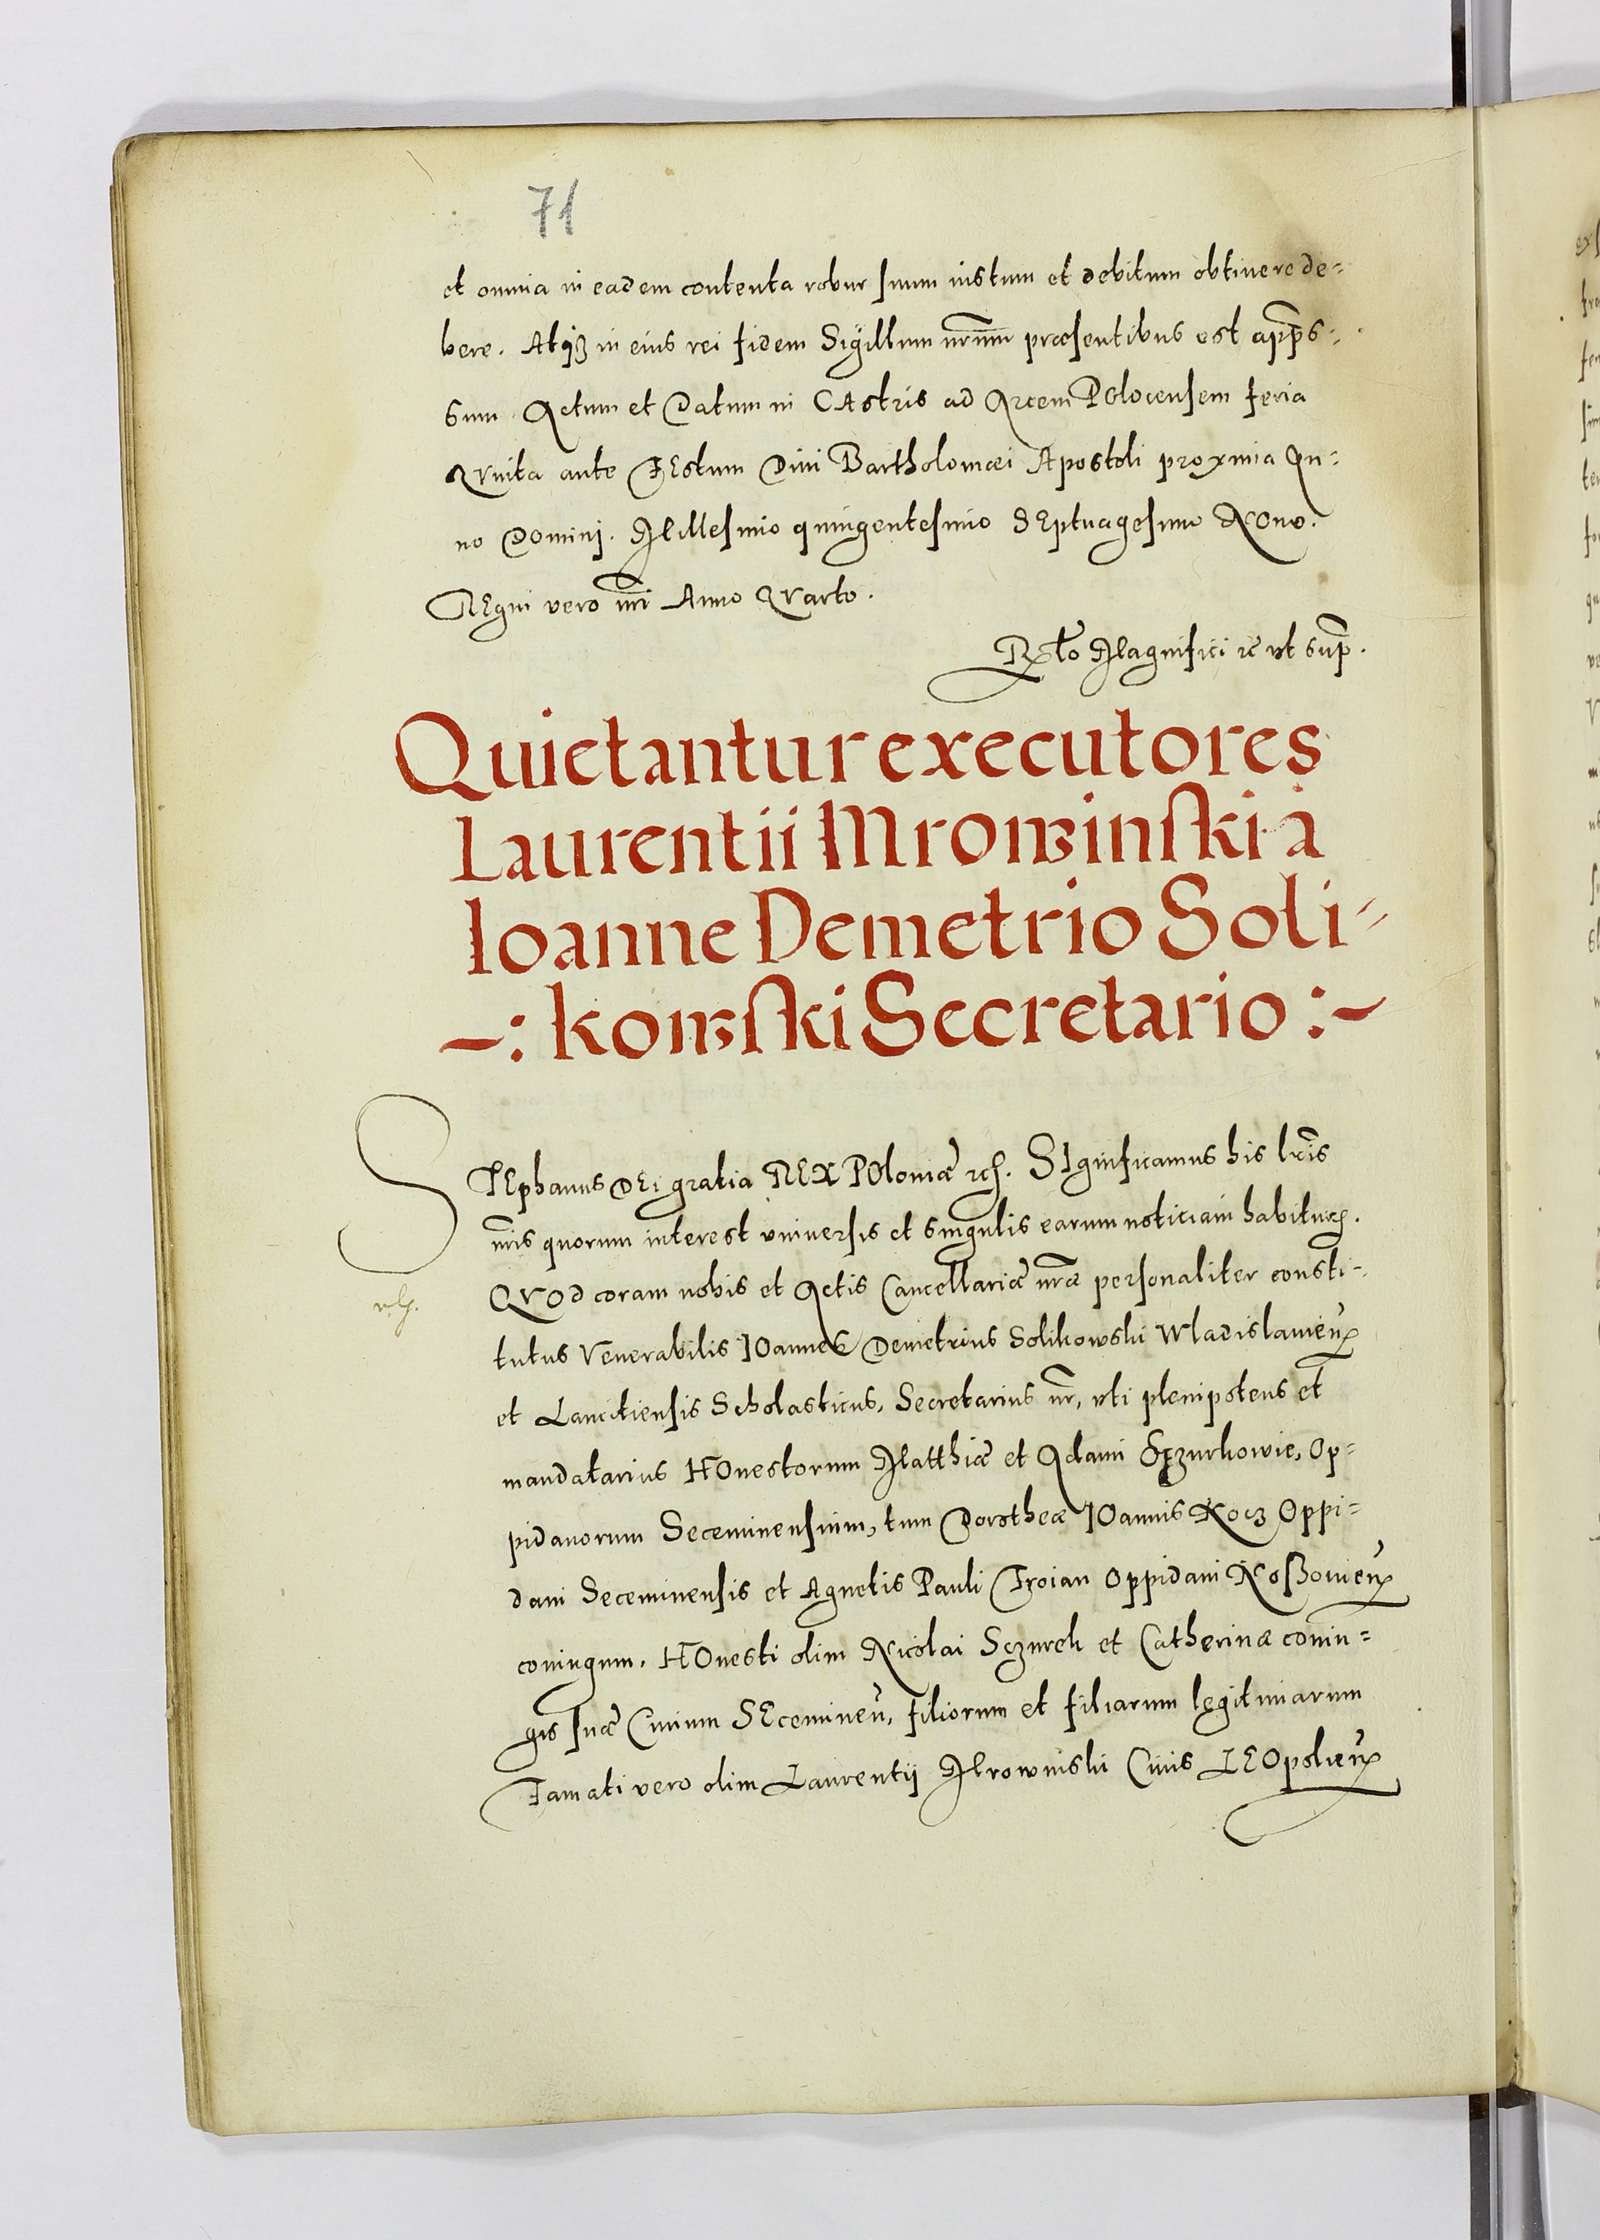 71
et omnia in eadem contenta robur suum iustum et debitum obtinere de=
bere. Atq3 in eius rei fidem Sigillum nrum præsentibus est apprs=
sum. Actum et Datum in CAstris ad Arcem POlocensem feria
QVuita ante FEstum Diui Bartholomæi Apostoli proxima An=
no DOminj. Millesimo quingentesimo SEptuagesimo NOno.
REgni vero nri Anno QVarto.
Rlto Magnifici rc vt supr.
Quietantur executores
Laurentii Mrowinski a
Ioanne Demetrio Soli=
-: kowski Secretario :-
STEphanus DEi gratia REX POloniæ rc. SIgnificamus his lris
nris quorum interest vniuersis et singulis earum noticiam habitur.
QVOd coram nobis et Actis Cancellariæ nræ personaliter consti=
tutus Venerabilis IOannes Demetrius Solikowski Wladislauien
et Lanciciensis Scholasticus, Secretarius nr, vti plenipotens et
mandatarius HOnestorum Matthiæ et Adami Sczurkowie, Op=
pidanorum Seceminensium, tum Dorotheæ IOannis Kocz Oppi=
dani Seceminensis et Agnetis Pauli Troian Oppidani Noßouien
coniugum. HOnesti olim Nicolai Sczurek et Catherinæ coniu=
gis suæ Ciuium SEceminen, filiorum et filiarum legitimarum
Famati vero olim Laurentij Mrowinski Ciuis LEOpolien